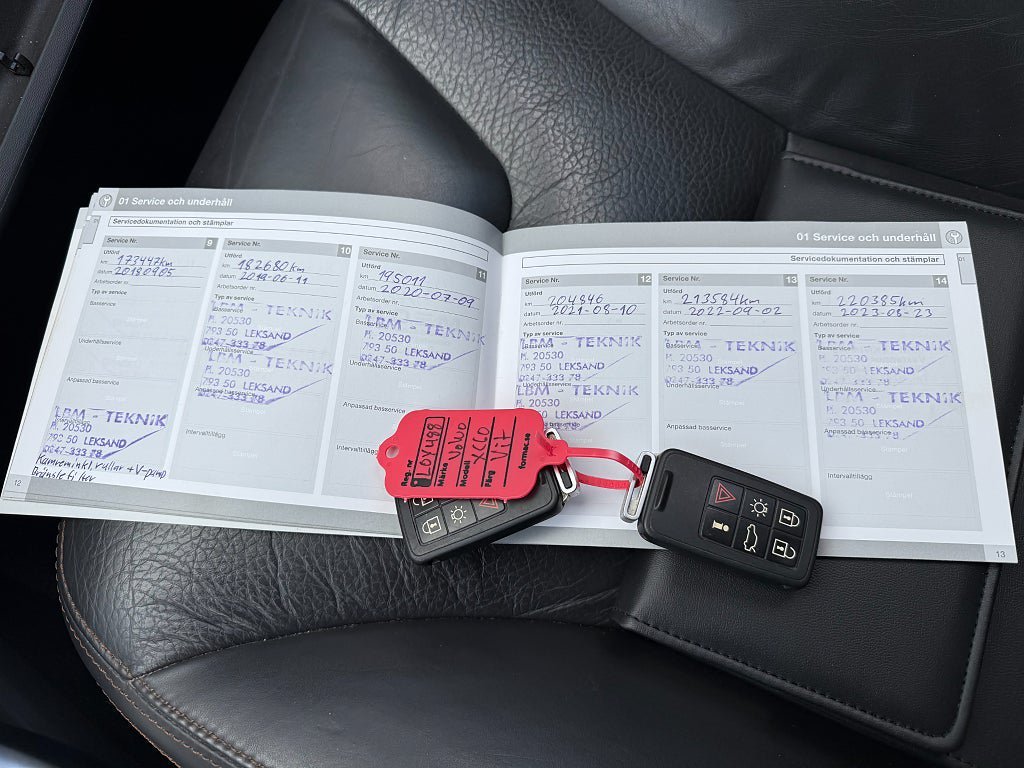 01 Service och underhåll
Servicedokumentation och stämplar
Service Nr. 9
Utförd
km 173447km
datum 20180905
Arbetsorder nr.
Typ av service
Basservice
Underhållsservice
Anpassad basservice
LBM - TEKNIK
Pl. 20530
793 50 LEKSAND
0247-333 78
Kamreminkl. rullar + V-pump
Bränslefilter
12
Service Nr. 10
Utförd
km 182680km
datum 2019-06-11
Arbetsorder nr.
Typ av service
LBM - TEKNIK
Basservice
Pl. 20530
793 50 LEKSAND
0247-333 78
Underhållsservice
LBM - TEKNIK
Pl. 20530
793 50 LEKSAND
Anpassad basservice
0247-333 78
Stämpel
Intervalltillägg
Service Nr. 11
Utförd
km 195011
datum 2020-07-09
Arbetsorder nr.
Typ av service
LBM - TEKNIK
Basservice
Pl. 20530
793 50 LEKSAND
0247-333 78
Underhållsservice
Stämpel
Anpassad basservice
01 Service och underhåll
Servicedokumentation och stämplar
01
Service Nr. 12
Utförd
km 204846
datum 2021-08-10
Arbetsorder nr.
Typ av service
LBM - TEKNIK
Basservice
Pl. 20530
793 50 LEKSAND
0247-333 78
Underhållsservice
LBM - TEKNIK
Pl. 20530
793 50 LEKSAND
0247-333 78
Service Nr. 13
Utförd
km 213584km
datum 2022-09-02
Arbetsorder nr.
Typ av service
LBM - TEKNIK
Basservice
Pl. 20530
793 50 LEKSAND
0247-333 78
Underhållsservice
Stämpel
Anpassad basservice
Intervalltillägg
Service Nr. 14
Utförd
km 220385km
datum 2023-08-23
Arbetsorder nr.
Typ av service
LBM - TEKNIK
Basservice
Pl. 20530
793 50 LEKSAND
0247-333 78
Underhållsservice
LBM - TEKNIK
Pl. 20530
793 50 LEKSAND
0247-333 78
Anpassad basservice
Intervalltillägg
Stämpel
13
Reg. nr LOY498
Märke Volvo
Modell XC60
Färg Vit
formec.se